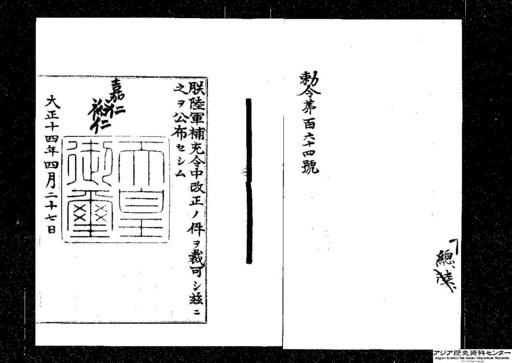 勅令第百六十四號
総陸
朕陸軍補充令中改正ノ件ヲ裁可シ茲ニ
之ヲ公布セシム
嘉仁
裕仁
天皇
御璽
大正十四年四月二十七日
アジア歴史資料センター
Japan Center for Asian Historical Records